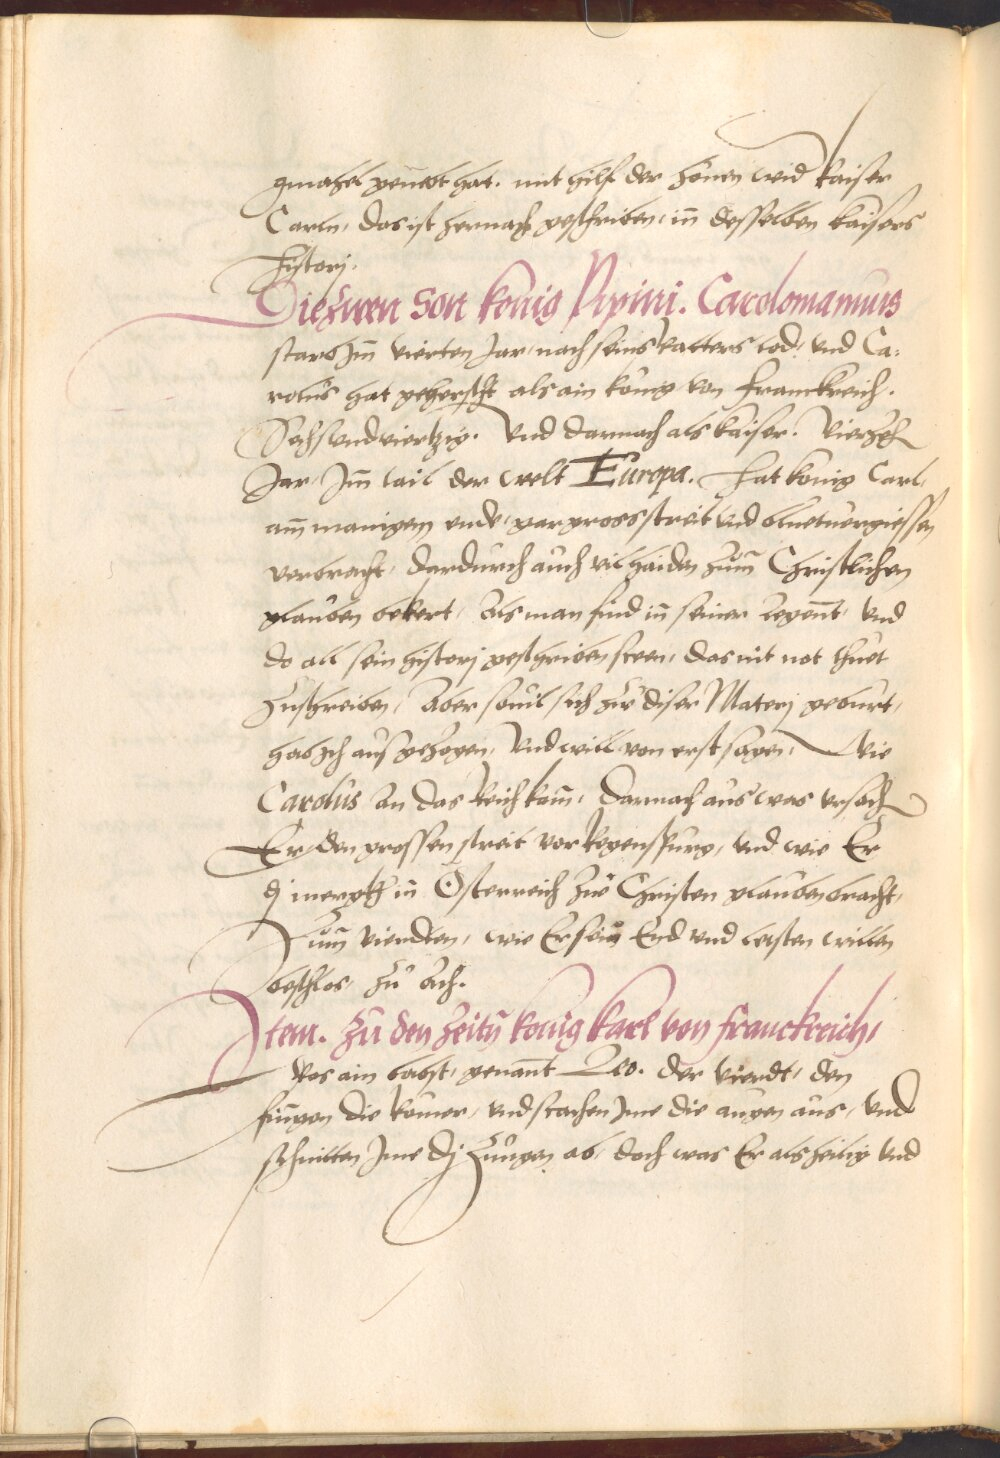 gmahel geuebt hat. mit hilf der Hönen wid kaiser
Carln, das ist hernach geschriben, in desselben kaisers
histori.
Die zwen Son konig Pipini. Carolomannus
starb Im vierten Jar, nach seins vatters tod, und Ca:
rolus hat geherscht als ain konig von Franckreich.
Sechsundviertzig. Und darnach als kaiser. Vierzeh
Jar, Im tail der welt Europa. Hat konig Carl,
am manigem ende, gar gross streit und bluetuergiessen
verbracht, dardurch auch vil haiden zum Christlichen
glauben bekert, Als man find in seiner legent, und
do all sein histori geschriben steen, das nit not thuet
zuschreiben, Aber sovil sich zu diser Materj geburt,
hab Ich ausgezogen, Und will von erst sagen, Wie
Carolus an das Reich kam, Darnach aus was ursach
Er den grossen streit vor Regenspurg, und wie Er
dj in Österreich zu Christen glauben bracht,
Zum vierdten, wie Er sein End und letsten willen
beschlos, zu Ach.
Item. zu den zeitn konig karl von franckreich,
Was ain babst, genant Leo. der vierdt, den
fiengen die Romer, und stachen Ime die augen aus, und
schnitten Ime dj Zungen ab, doch was Er als heilig und